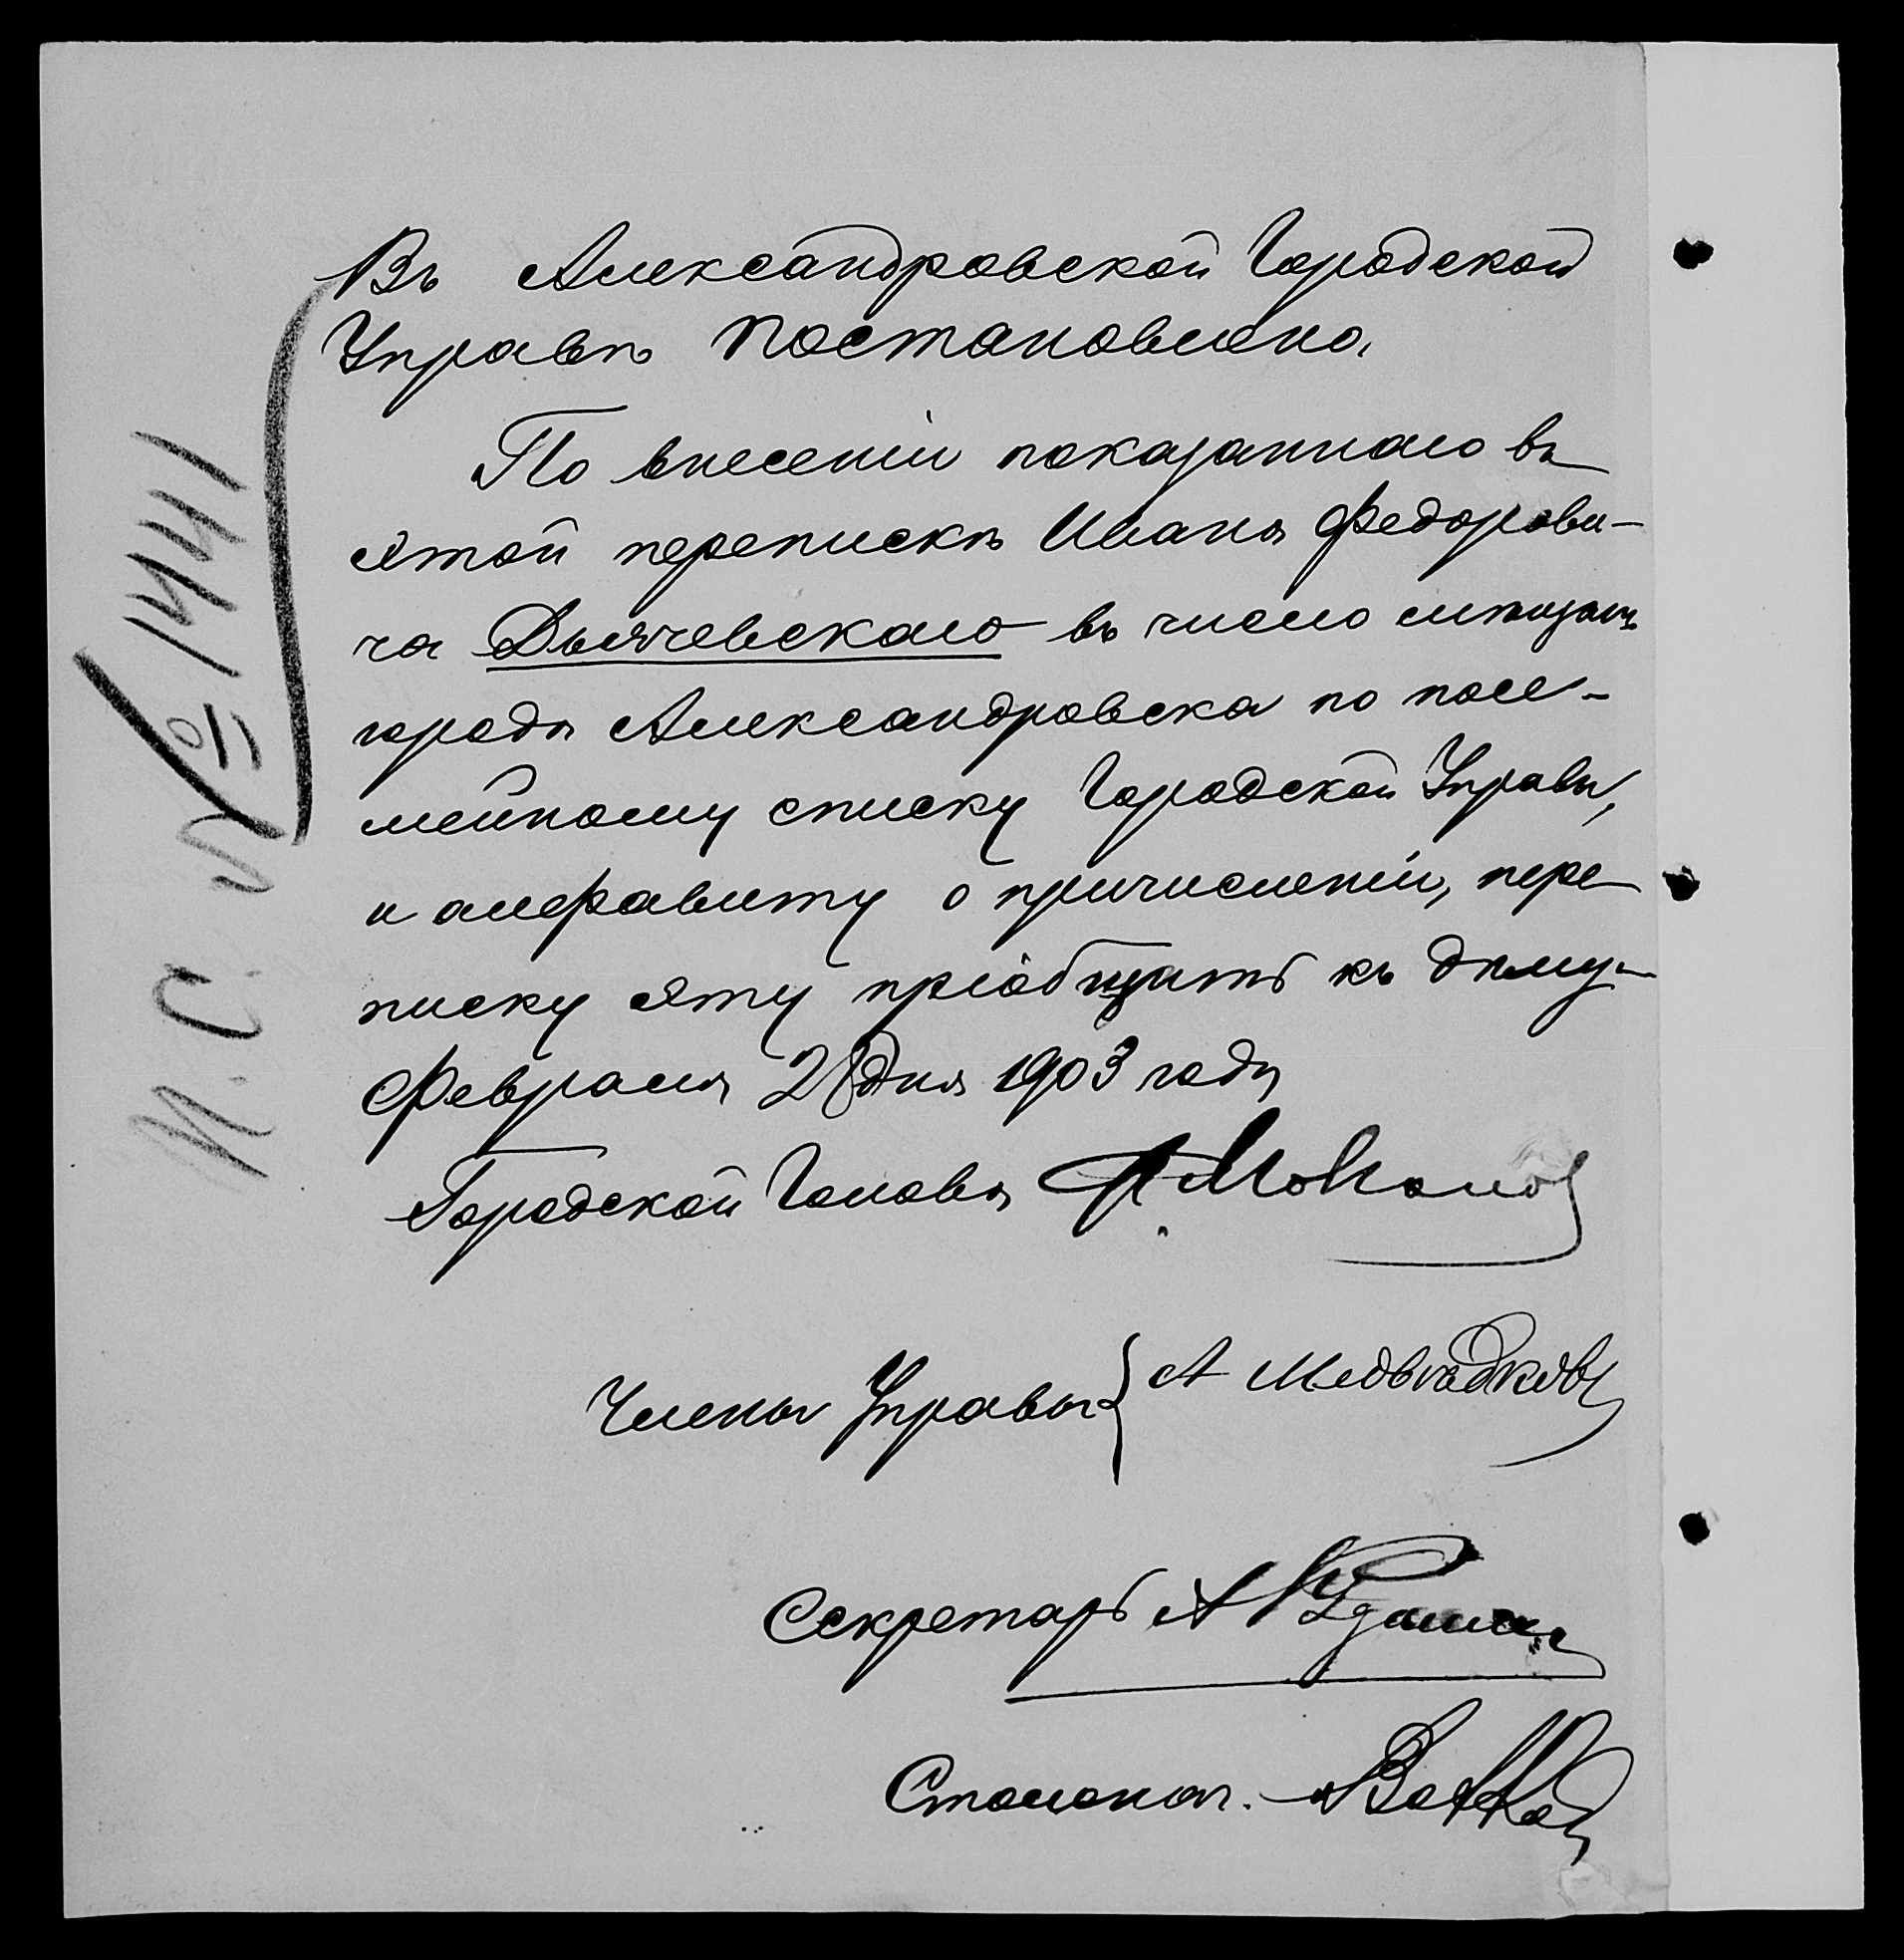 Въ Александровской Городской
Управѣ постановлено.
По внесеніи показаннаго въ
этой перепискѣ Ивана Федорови-
ча Дьячевскаго въ число мѣщанъ
города Александровска по посе-
мейному списку Городской Управы,
и алфавиту о причисленіи, пере
писку эту пріобщить къ дѣлу.
Февраля 28 дня 1903 года
Городской Голова Ф. Мовчанов
Члены Управы { А Медвѣдковъ
Секретарь А
Столонач.
М. С. № 1441